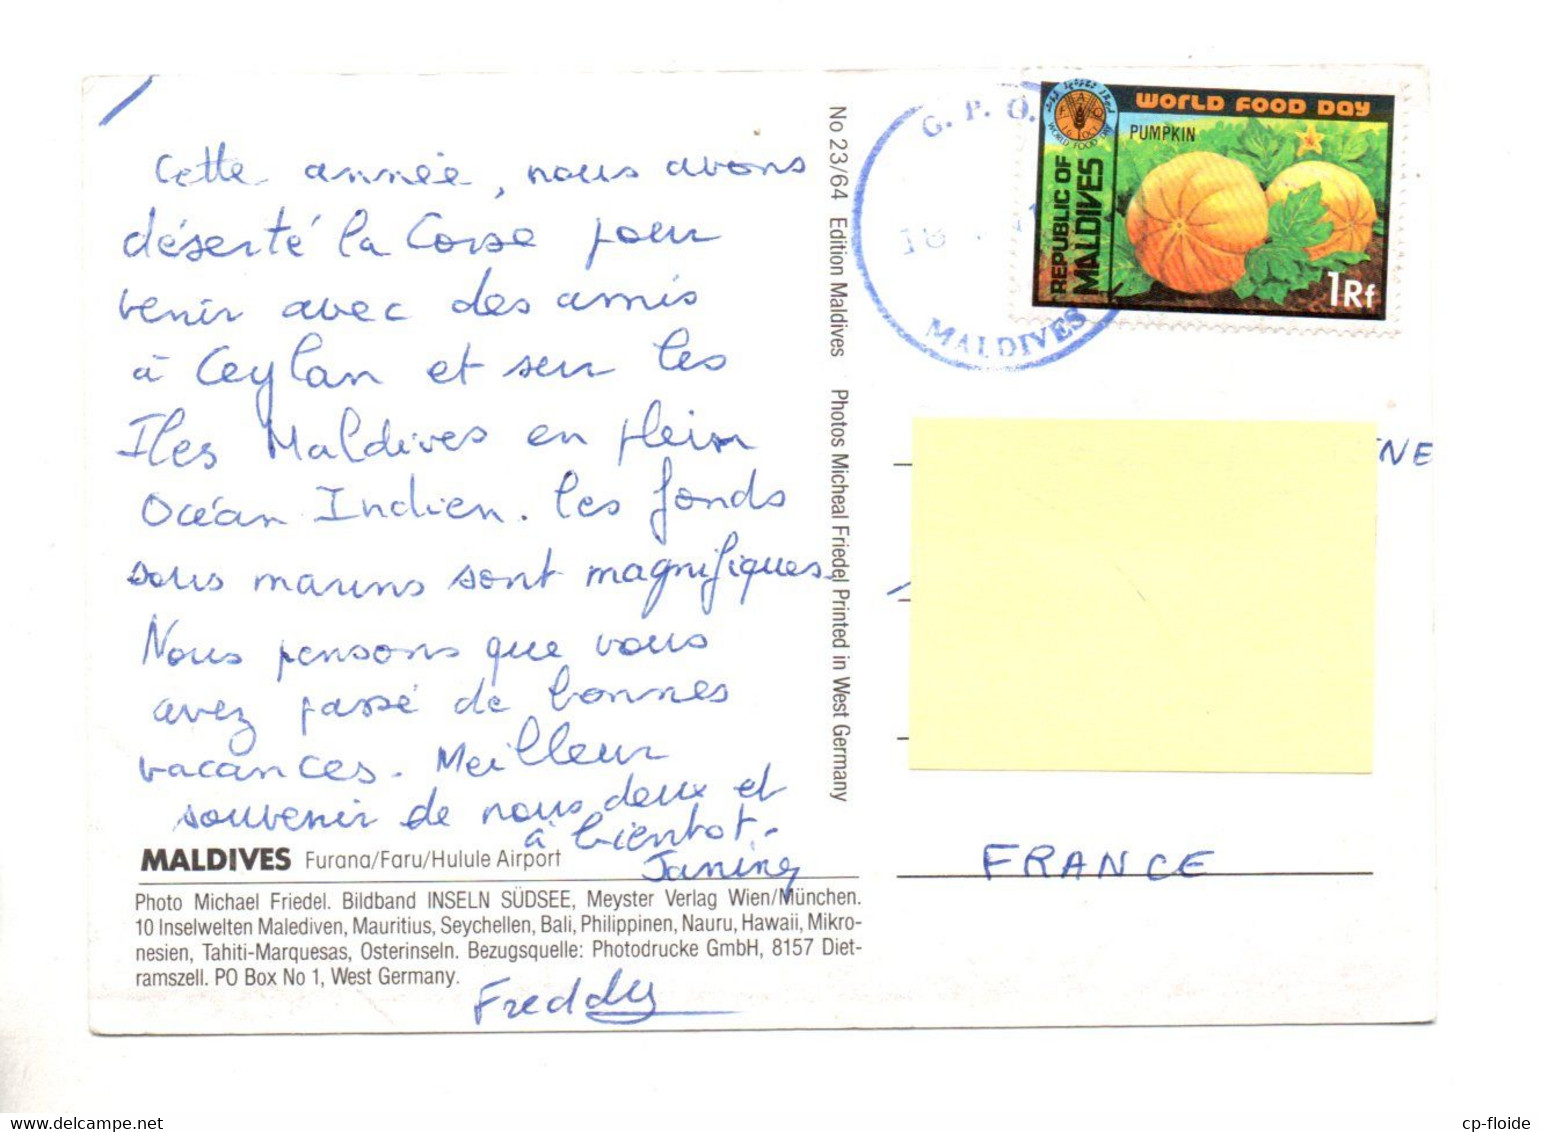 Cette année, nous avons
déserté la Corse pour
venir avec des amis
à Ceylan et sur les
Iles Maldives en plein
Océan Indien. les fonds
sous marins sont magnifiques.
Nous pensons que vous
avez passé de bonnes
vacances. Meilleur
souvenir de nous deux et
à bientot.
Janine
MALDIVES Furana/Faru/Hulule Airport
Photo Michael Friedel. Bildband INSELN SÜDSEE, Meyster Verlag Wien/München.
10 Inselwelten Malediven, Mauritius, Seychellen, Bali, Philippinen, Nauru, Hawaii, Mikro-
nesien, Tahiti-Marquesas, Osterinseln. Bezugsquelle: Photodrucke GmbH, 8157 Diet-
ramszell. PO Box No 1, West Germany.
Freddy
No 23/64 Edition Maldives Photos Micheal Friedel Printed in West Germany
G. P. O.
18
MALDIVES
WORLD FOOD DAY
PUMPKIN
REPUBLIC OF
MALDIVES
1Rf
FAO
16 OCT
WORLD FOOD DAY
NE
FRANCE
cp-floide